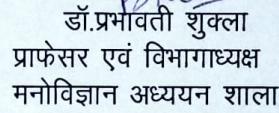 डॉ.प्रभावती शुक्ला
प्राफेसर एवं विभागाध्यक्ष
मनोविज्ञान अध्ययन शाला